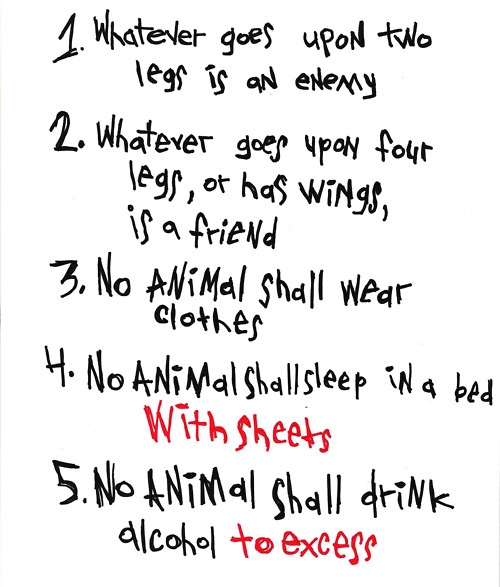 1. Whatever goes upon two
legs is an enemy
2. Whatever goes upon four
legs, or has wings,
is a friend
3. No ANiMal shall wear
clothes
4. No ANiMal shall sleep iN a bed
With sheets
5. No ANiMal shall drink
alcohol to excess